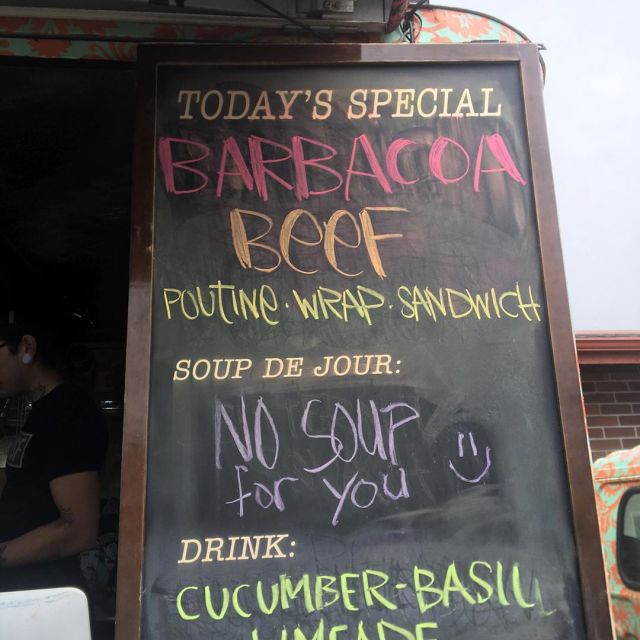 TODAY'S SPECIAL
BARBACOA
BeeF
POUTINe · WRAP · SANDWICH
SOUP DE JOUR:
NO SOUP
for you
DRINK:
CUCUMBER-BASIL
LIMEADE